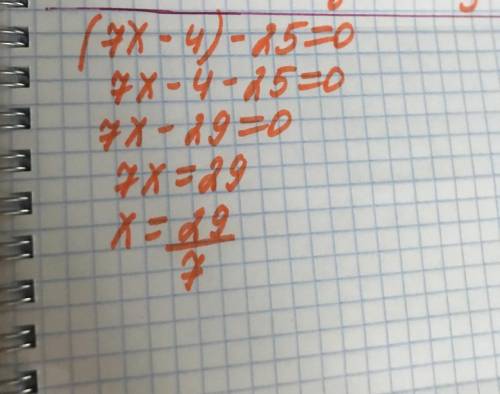 (7x - 4) - 25 = 0
7x - 4 - 25 = 0
7x - 29 = 0
7x = 29
x = 29/7